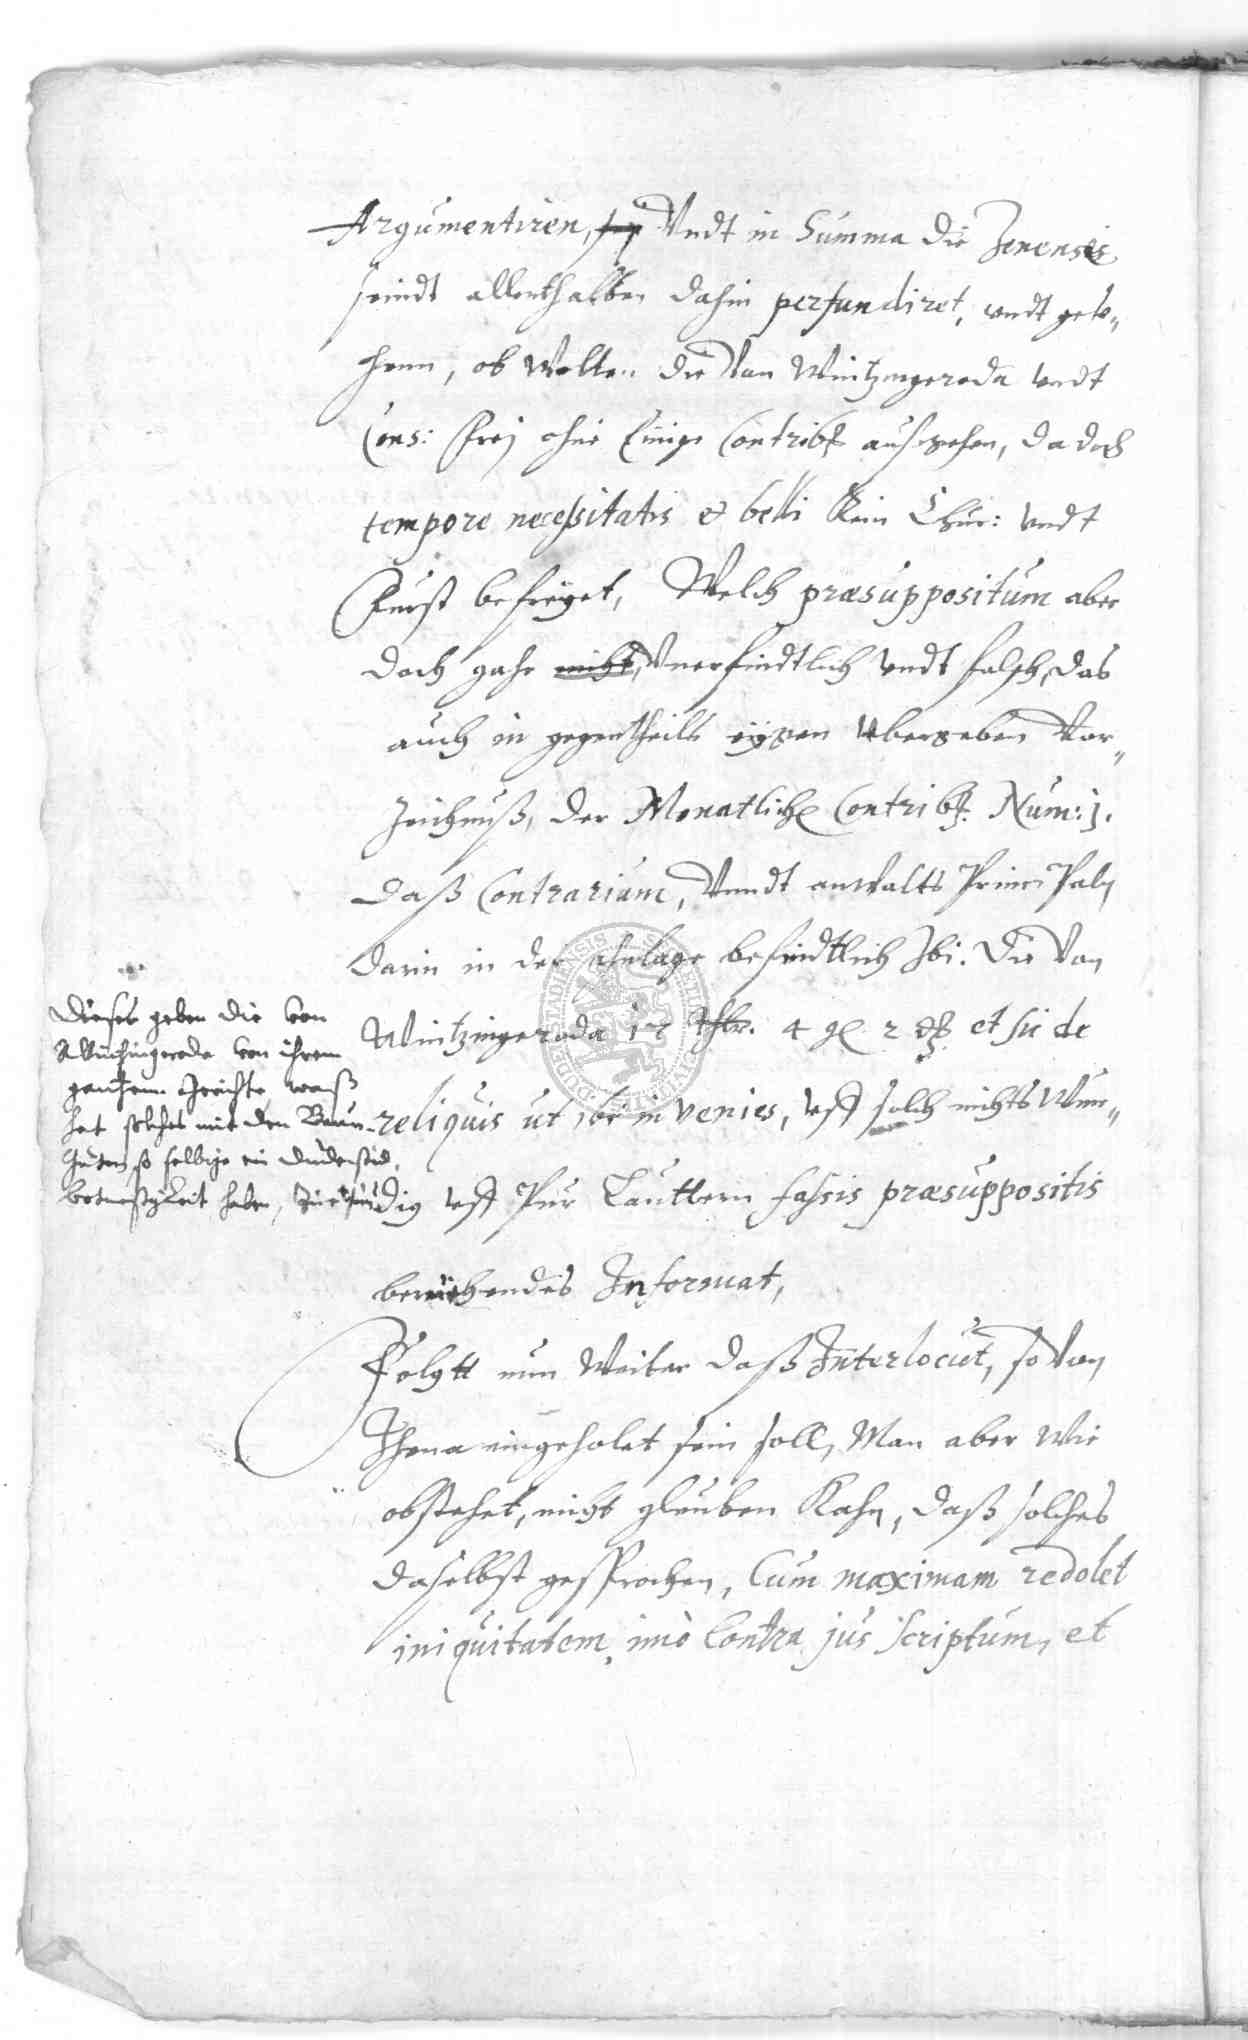 Argumentiren, Vndt in Summa die Jenenses
seindt allenthalben dahin perfundiret, vndt
henn, ob Wolten die Von Wintzingeroda vndt
Cons: Frej ohne Einige Contrib: außgehen, da doch
tempore necessitatis et belli Kein Chur: vndt
Furst befreyet, Welch præsuppositum aber
doch gahr nicht, Vnerfindtlich vndt falsch, das
auch in gegentheils eygen Vbergeben Vor„
Zeichnuß, der Monatliche Contrib: Num: j.
Daß Contrarium, Vnndt anwalts Principaln
darin in der anlage befindtlich Ibi. Die Von
Wintzingeroda 17 thlr. 4 gl 2 ₰ et sic de
reliquis ut ibi invenies, vff solch nichts Wür„
dig vff Pur Lauttern falsis præsuppositis
beruhendes Informat,
Folgtt nun Weiter daß Interlocut, so Von
Jhena eingeholet sein soll, Man aber Wie
obstehet, nicht gleuben Kahn, daß solches
daselbst gesprochen, Cum maximam redolet
iniquitatem, imò Contra jus scriptum, et
Dieses geben die von
Wintzingerode von ihrem
gantzem Gerichte, waß
hat solches mit den
Gütern, so selbige in Duderstad.
botmeßigkeit haben,